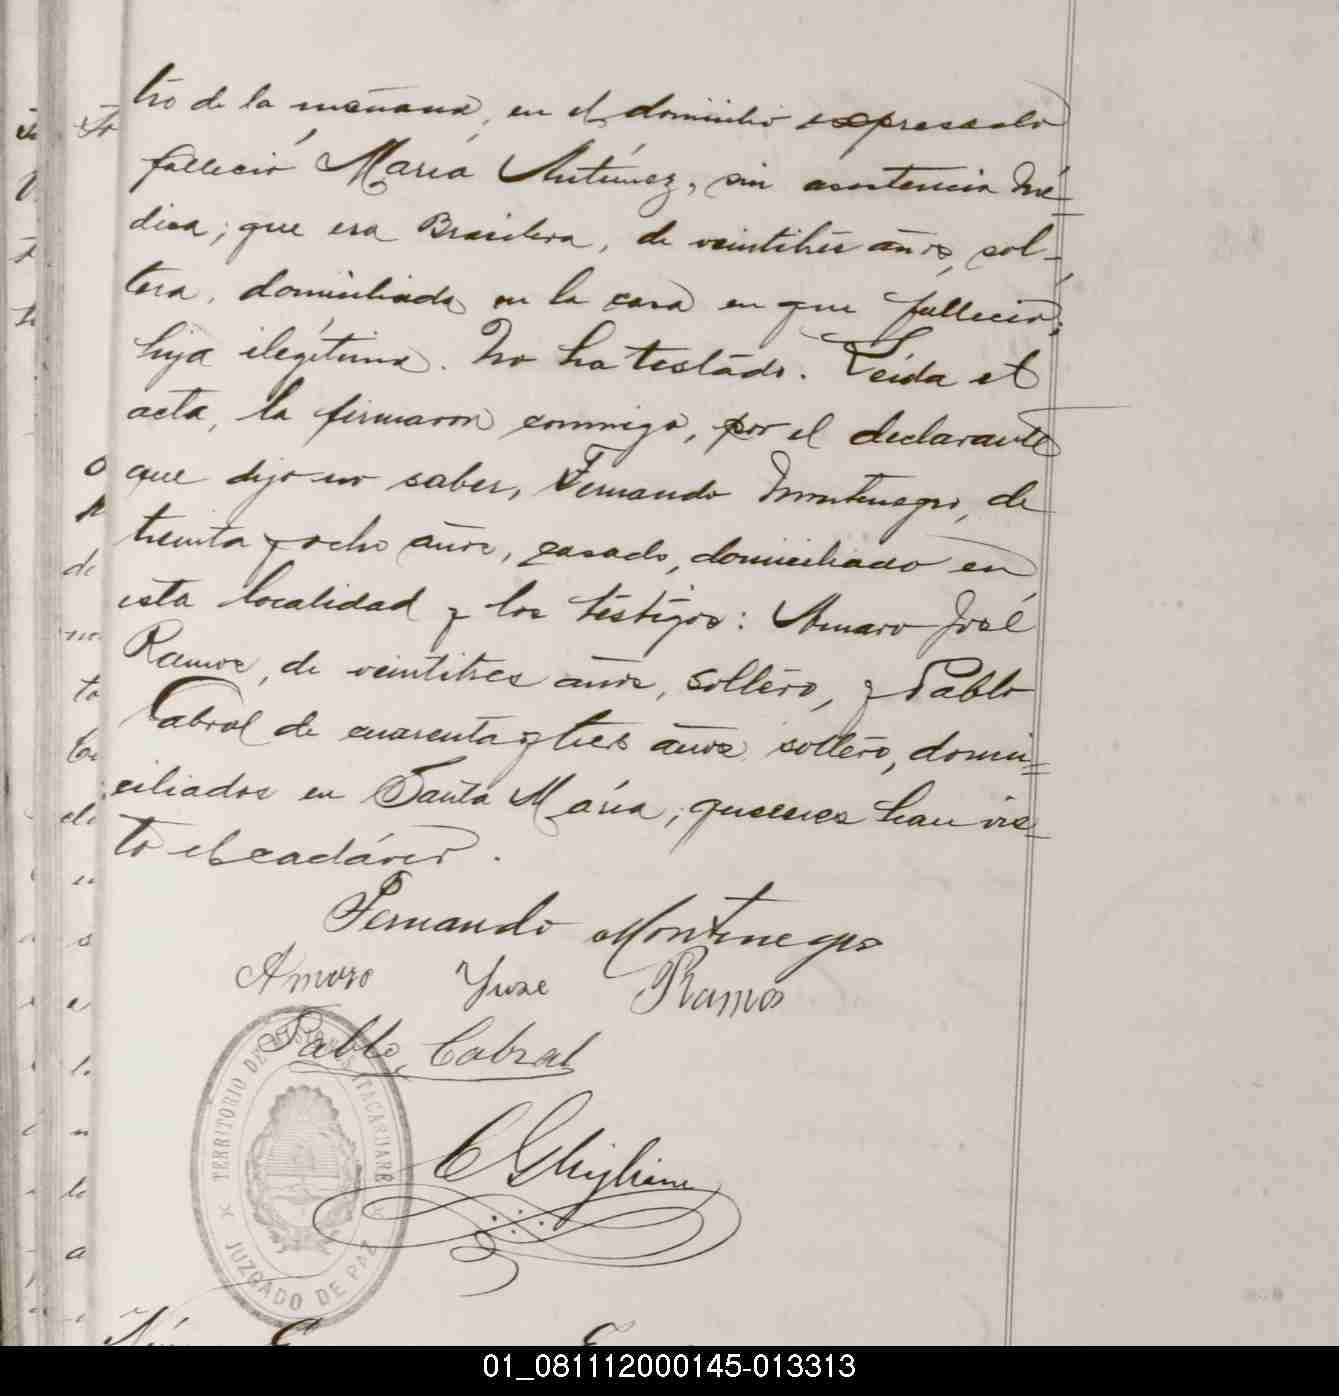 tro de la mañana, en el domicilio expresado
falleció María Antúnez, sin asistencia mé-
dica; que era Brasilera, de veintitrés años, sol-
tera, domiciliada en la casa en que falleció;
hija ilegítima. No ha testado. Leída el
acta, la firmaron conmigo, por el declarante
que dijo no saber, Fernando Montenegro, de
treinta y ocho años, casado, domiciliado en
esta localidad y los testigos: Amaro José
Ramos, de veintitres años, soltero, y Pablo
Cabral de cuarenta y tres años soltero, domi-
ciliados en Santa María; quienes han vis-
to el cadáver.
Fernando Montenegro
Amaro Jose Ramos
Pablo Cabral
C Ghigliani
TERRITORIO DE MISIONES ITACARUARÉ
JUZGADO DE PAZ
01_081112000145-013313